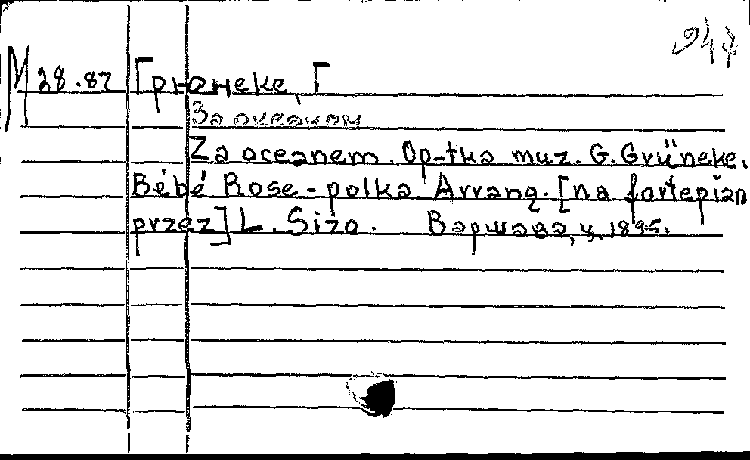 947
М 28.87 Грюнеке, Г
За океаном
Za oceanem. Op-tka muz. G. Grüneke.
Bébé Rose-polka Arrang. [na fortepian
przez] L. Sizo. Варшава, ц. 1895.